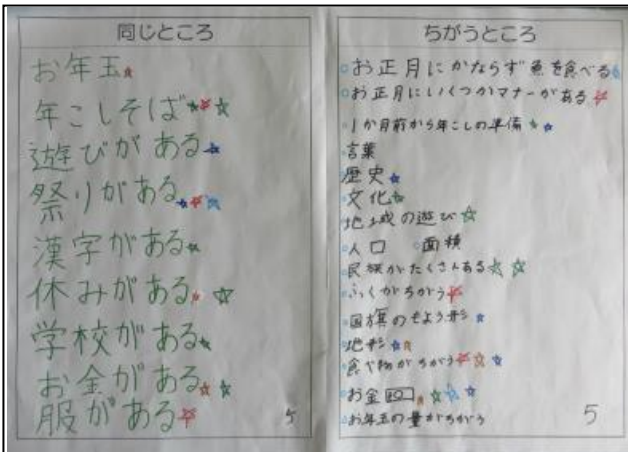 同じところ
お年玉
年こしそば
遊びがある
祭りがある
漢字がある
休みがある
学校がある
お金がある
服がある
5
ちがうところ
お正月にかならず魚を食べる
お正月にいくつかマナーがある
1か月前から年こしの準備
言葉
歴史
文化
地域の遊び
人口 面積
民族がたくさんある
ふくがちがう
国旗のもよう形
地形
食べ物がちがう
お金
お年玉の量がちがう
5